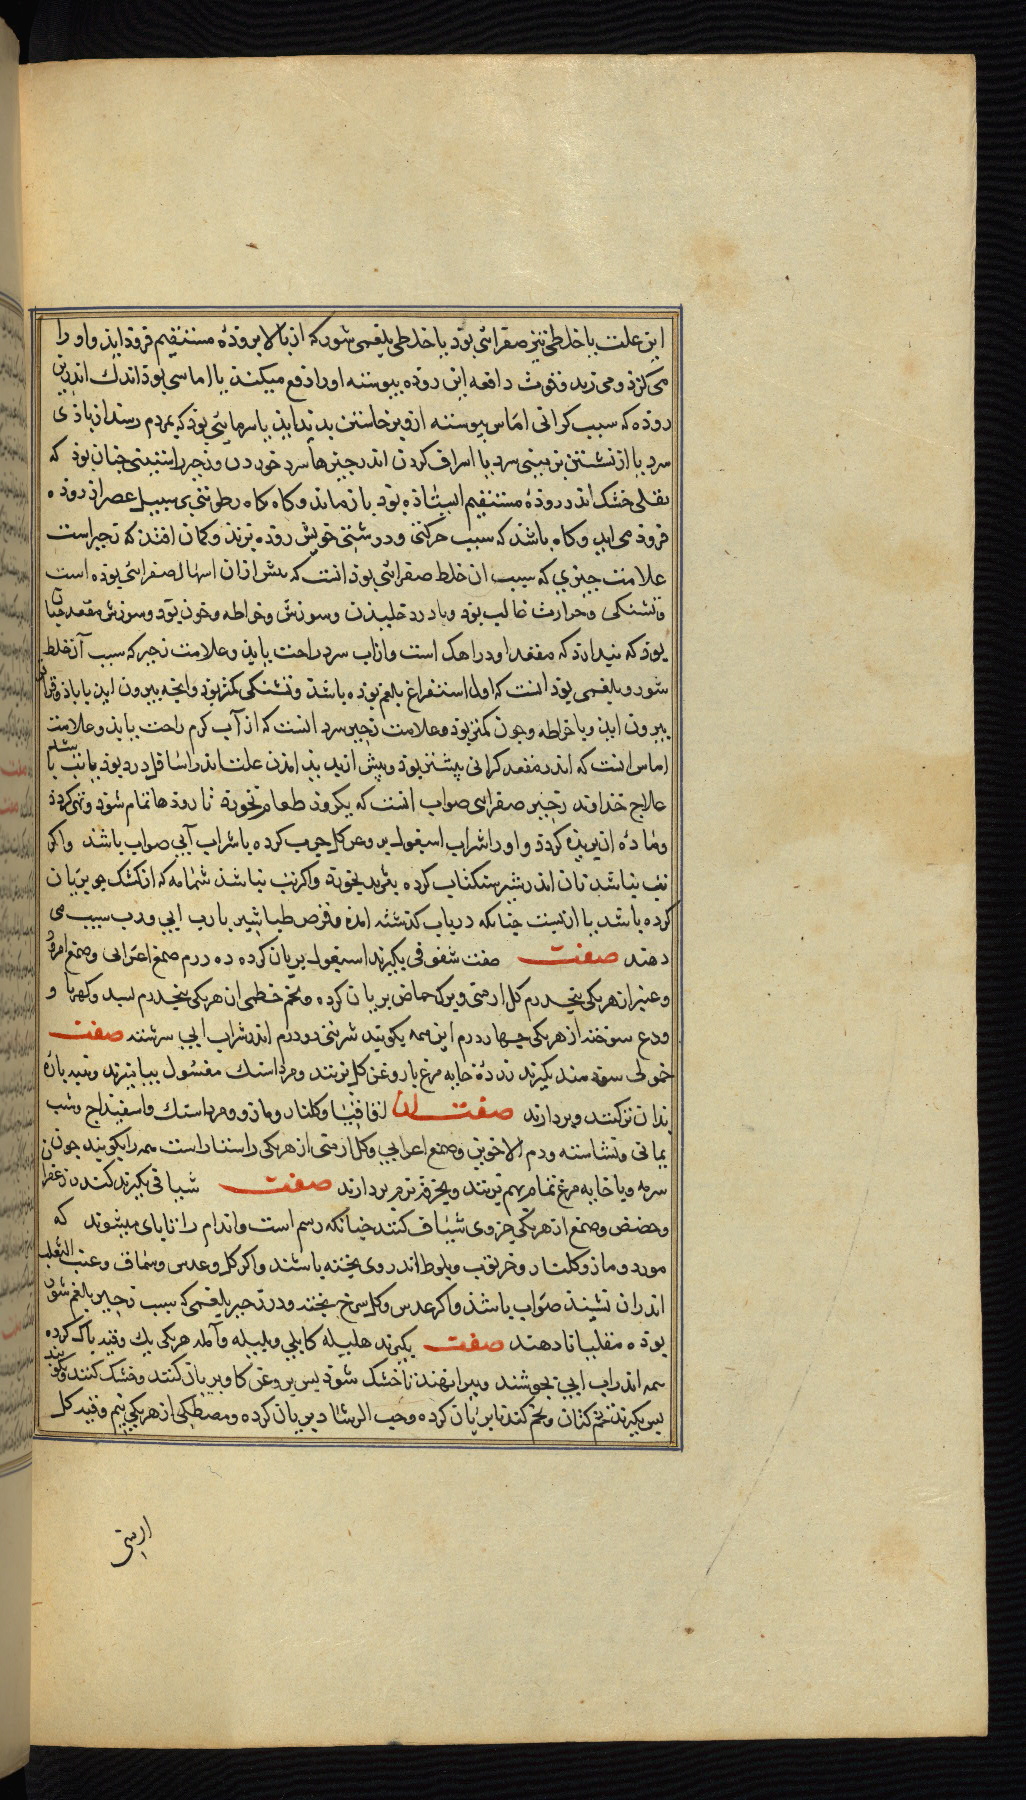 این علت یا خلطی تیز صفرائی بود یا خلطی بلغمی شور که از بالا بروده مستقیم فرود اید و او را
می گزد و می رند و قوت دافعه این روده پیوسته او را دفع میکند یا اماسی بود اندک اندرین
روده که سبب کرانی اماس پیوسته ازوی خاستن بدید اید یا سرمایی بود که بمردم رسد از باذی
سرد یا از نشستن بر زمینی سرد یا اسراف کردن اندر چیزها سرد خوردن و زحیر راستینی چنان بود که
ثفلی خشک اندر روده مستقیم ایستاده بود باز ماند و کاه کاه رطوبتی بر سبیل عصر از روده
فرود می اید و کاه باشد که سبب حرکتی و درشتی خویش روده برند و کمان افتد که زحیر است
علامت چیزی که سبب ان خلط صفرائی بود انست که پیش ازان اسهال صفرائی بوده است
و تشنکی و حرارت غالب بود و با درد خلیدن و سوزش و خراطه و خون بود و سوزش مقعد چنان
بود که پندارد که مقعد او در اهک است و از اب سرد راحت یابد و علامت زحیر که سبب آن خلط
شور و بلغمی بود انست که اول استفراغ بلغم بوده باشد و تشنکی کمتر بود و انچه بیرون اید با باد و قراقر
بیرون اید و با خراطه و خون کمتر بود و علامت زحیر سرد انست که از آب کرم راحت یابد و علامت
اماس انست که اندر مقعد کرانی بیشتر بود و پیش از پدید امدن علت اندر اسافل درد بود یا تب باشد
علاج خداوند زحیر صفرائی صواب انست که یکروز طعام نخورد تا رودها تمام شود و تهی کردد
و ماده ازو بریده کردد و او را شراب اسبغول بروغن کل چرب کرده با شراب آبی صواب باشد و اکر
تب نباشد نان اندر شیر سنکتاب کرده بثرید بخورد و اکر تب نباشد شمامه که از کشک جو بریان
کرده باشد یا از پست چنانکه در باب کذشته امده و قرص طباشیر با رب ابی و رب سیب می
دهند صفت صفت سفوفی بکیرند اسبغول بریان کرده ده درم صمغ اعرابی و صمغ امرود
و عنبر از هر یکی پنجدرم کل ارمنی و برک حماض بریان کرده و تخم خطمی از هر یکی پنجدرم بسد و کهربا و
ودع سوخته از هر یکی چهار درم این همه بکوبند شربتی دو درم اندر شراب ابی سرشته صفت
حمولی سودمند بکیرند زرده خایه مرغ با روغن کل بزنند و مرداسنک مغسول بیامیزند و پنبه باره
بدان تر کنند و بردارند صفت اخر اقاقیا و کلنار و مازو و مرداسنک و اسفیداج و شب
یمانی و نشاسته و دم الاخوین و صمغ اعرابی و کل ارمنی از هر یکی راستاراست همه را بکوبند چون
سرمه و با خایه مرغ تمام بهم بزنند و بخرقه نرم بردارند صفت شیافی بکیرند کندر و زعفران
و حضض و صمغ از هر یکی جزوی شیاف کنند چنانکه رسم است و اندام را تا پای میشوند که
مورد و مازو کلنار و خرنوب و بلوط اندر وی پخته باشند و اکر کل و عدس و سماق و عنب الثعلب
اندران نشیند صواب باشد و اکر عدس و کل سرخ پخته و در زحیر بلغمی که سبب زحیر بلغم شور
بوده مقلیاثا دهند صفت بکیرند هلیله کابلی و بلیله و آمله هر یکی یک وقیه پاک کرده
همه اندر اب ابی بجوشند و بیرا نهند تا خشک شود پس بروغن کاو بریان کنند و خشک کنند و بکوبند
پس بکیرند تخم کتان و تخم کندنا بریان کرده و حب الرشاد بریان کرده و مصطکی از هر یکی نیم وقیه کل
ارمنی